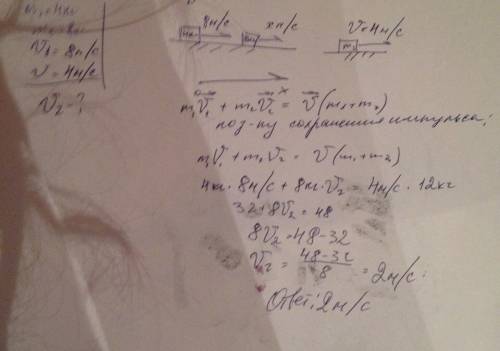 m₁=4кг
V₁=8м/с
V=4м/с
V₂-?
8м/с x м/с V=4м/с
4кг 8кг
x
m₁V₁ + m₂V₂ = V(m₁+m₂)
по з-ну сохранения импульса:
m₁V₁ + m₂V₂ = V(m₁+m₂)
4кг · 8м/с + 8кг · V₂ = 4м/с · 12кг
32+8V₂ = 48
8V₂ = 48-32
V₂ = 48-32 / 8 = 2м/с.
Ответ: 2м/с